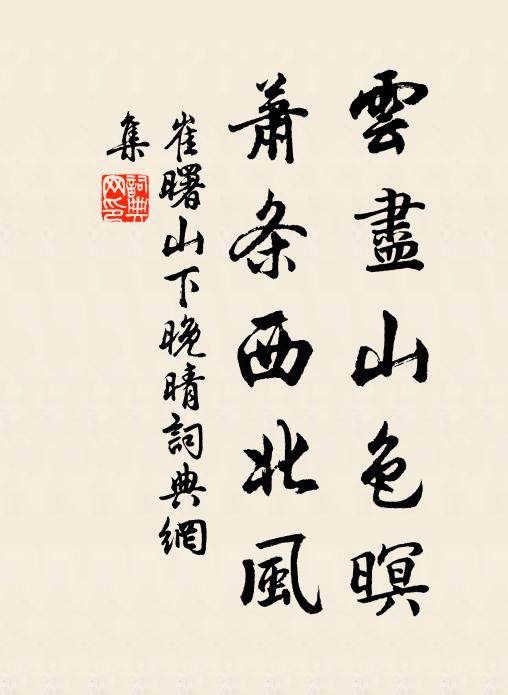 雲盡山色暝
蕭条西北風
崔曙山下晚晴詞典網
集
詞典
網印